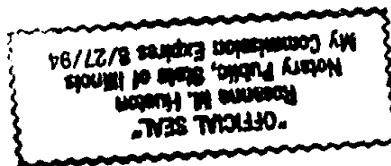 "OFFICIAL SEAL"
Rosanne M. Huston
Notary Public, State of Illinois
My Commission Expires 8/27/94